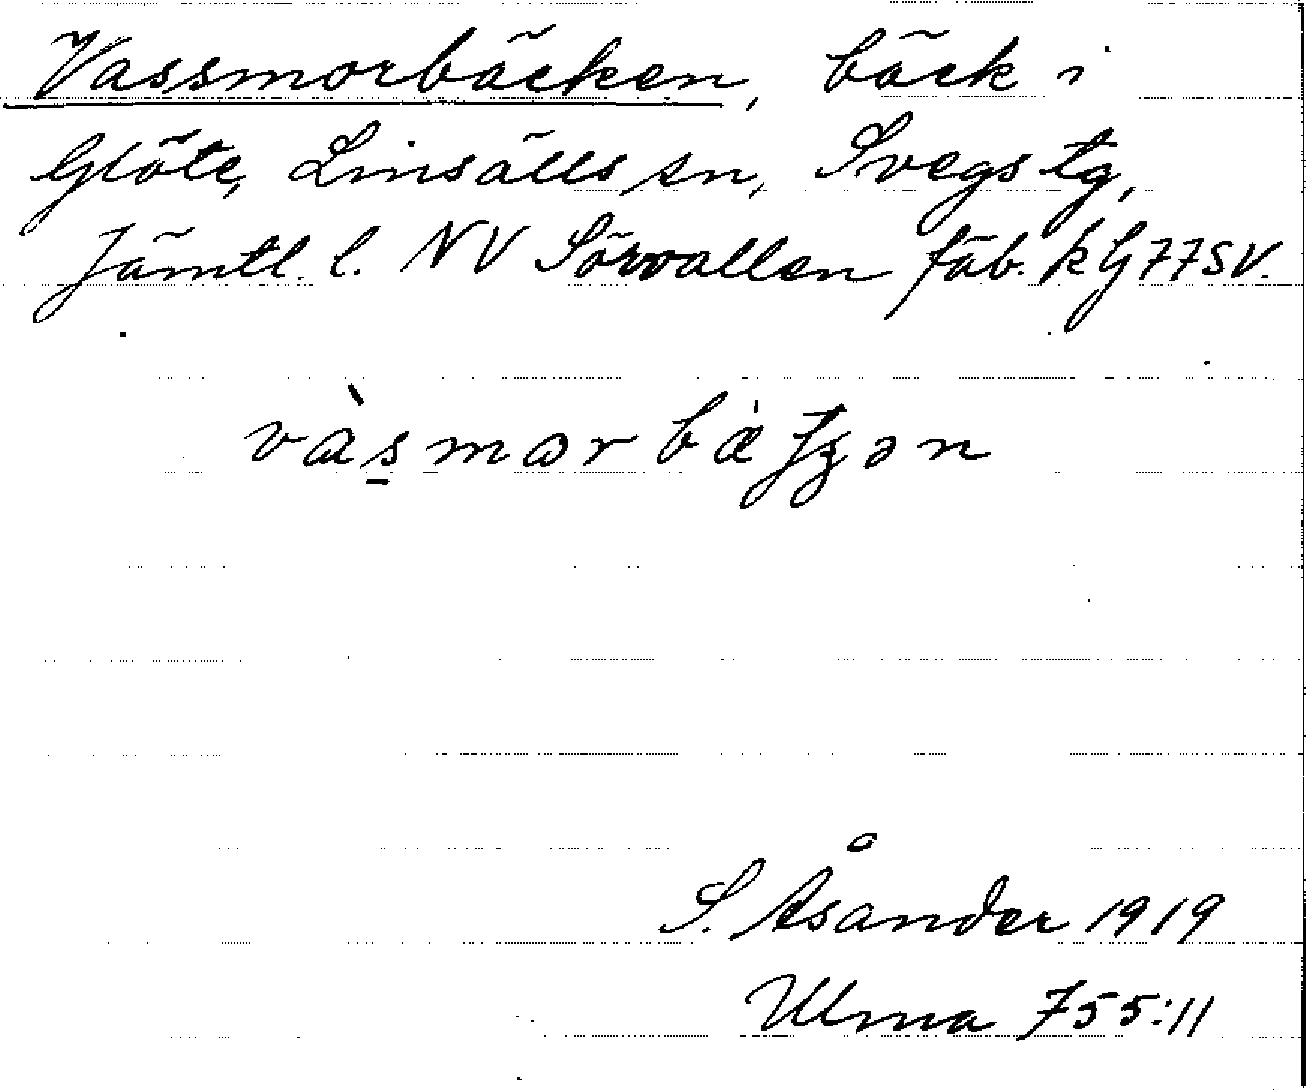 Vassmorbäcken, bäck i
Glöte, Linsälls sn, Svegs tg,
Jämtl. l. NV Sörvallen fäb. kG77SV.
vàsmɷr bæ̀ʃʒən
S. Åsander 1919
Ulma 755:11